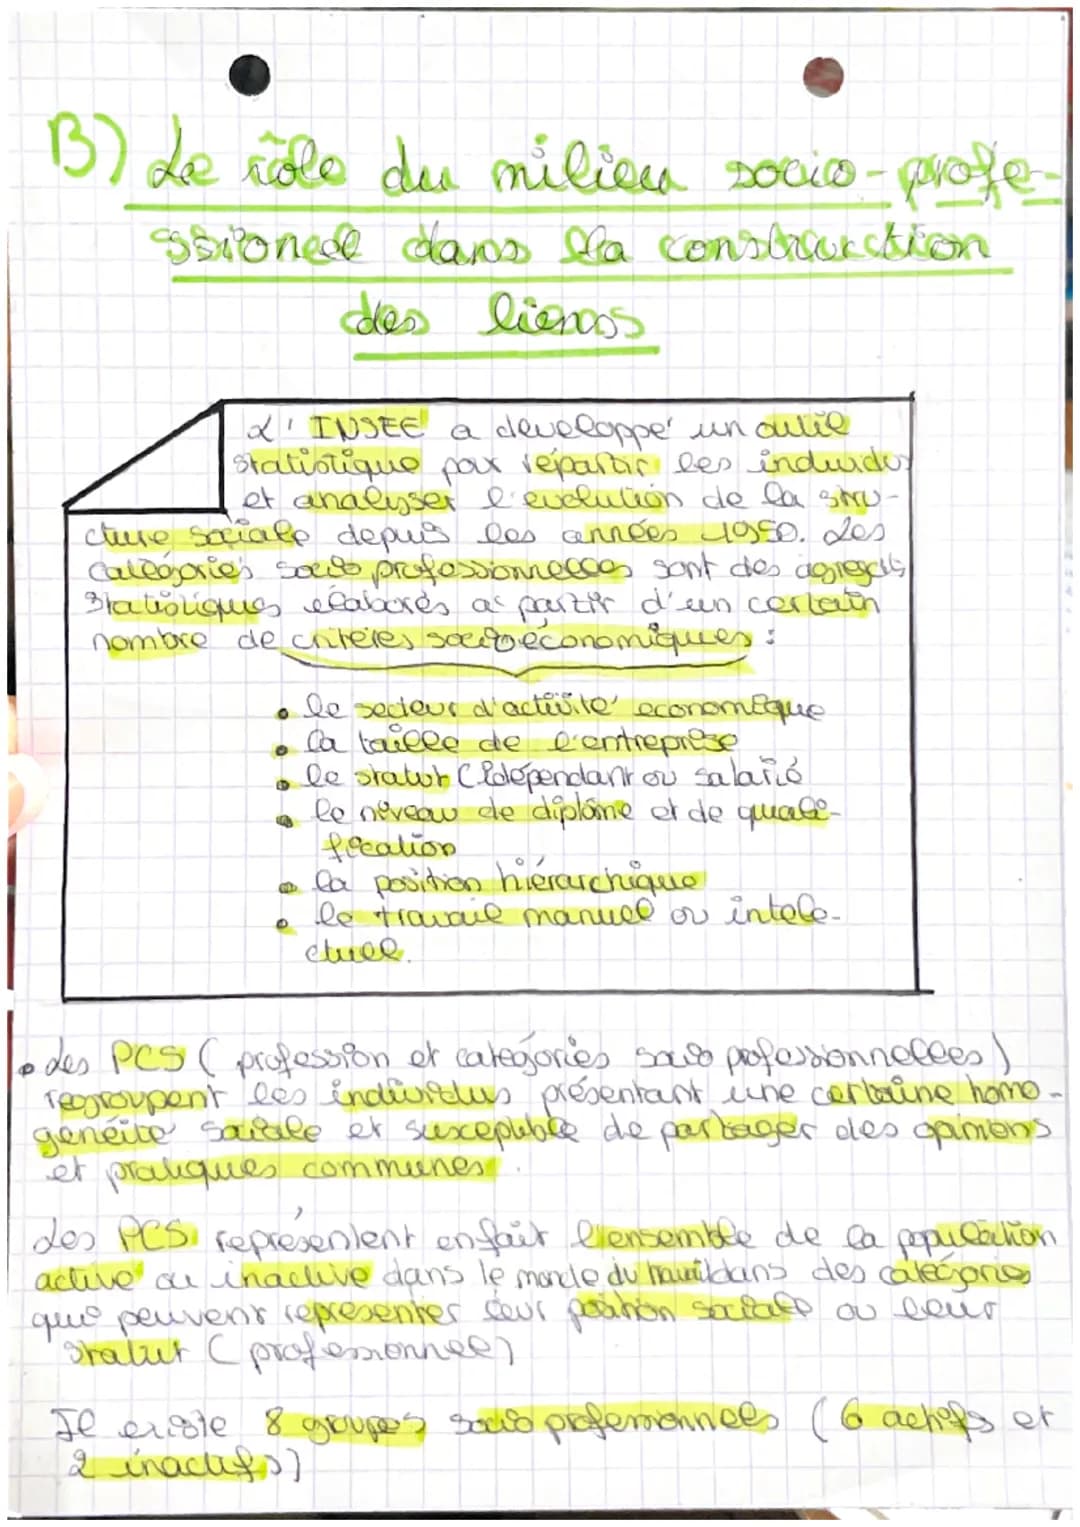 B) Le rôle du milieu socio-profe-
ssionel dans la construction
des liens
L'INSEE a developpé un outil
statistique par répartir les individus
et analyser l'evolution de la stru-
cture sociale depuis les années 1950. Les
catégories socio professionnelles sont des agregats
statistiques elaborés a partir d'un certain
nombre de critères socioéconomiques :
• le secteur d'activité economique
• la taille de l'entreprise
• le statut (Idépendant ou salarié
• le niveau de diplôme et de quali-
fication
• la position hiérarchique
• le travail manuel ou intele-
ctuel.
• Les PCS ( profession et catégories socio professionnelles )
regroupent les individus présentant une certaine homo-
généité sociale et susceptible de partager des opinions
et pratiques communes.
Les PCS représentent en fait l'ensemble de la population
active ou inactive dans le monde du travail dans des catégories
qui peuvent representer leur position sociale ou leur
statut (professionnel)
Il existe 8 groupes socio professionnels (6 actifs et
2 inactifs)